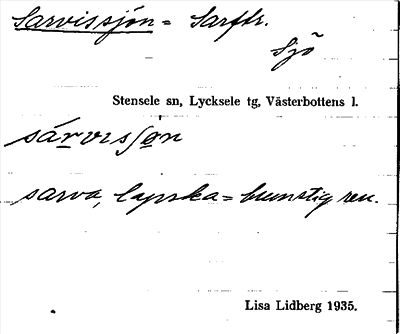 Sarvissjön = Sarftr.
Sjö
Stensele sn, Lycksele tg, Västerbottens l.
sárvisʃøn
sarva, lapska = brunstig ren.
Lisa Lidberg 1935.